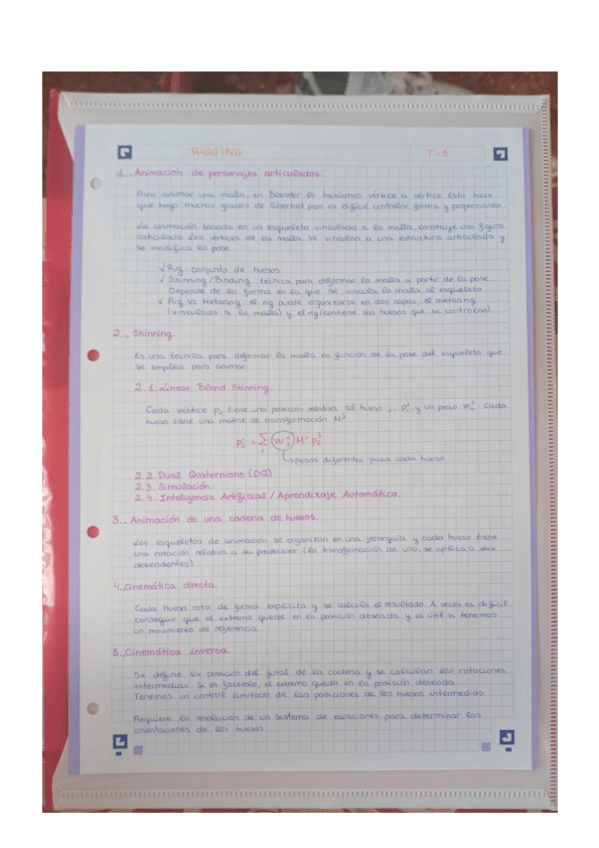 RIGGING T-5
1._Animación de personajes articulados.
Para animar una malla, en Blender lo hacíamos vértice a vértice. Esto hace
que haya muchos grados de libertad pero es difícil controlar forma y proporciones.
La animación basada en un esqueleto vinculado a la malla, construye una figura
articulada. Los vértices de la malla se vinculan a una estructura articulada y
se modifica la pose.
✓ Rig: conjunto de huesos.
✓ Skinning/Binding: técnica para deformar la malla a partir de la pose.
Depende de la forma en la que se vincula la malla al esqueleto.
✓ Rig vs Metarig: el rig puede organizarse en dos capas: el metarig
(vinculado a la malla) y el rig (contiene los huesos que se controlan).
2._Skinning.
Es una técnica para deformar la malla en función de la pose del esqueleto que
se emplea para animar.
2.1. Linear Blend Skinning.
Cada vértice pᵢ tiene una posición relativa al hueso j, pᵢʲ y un peso wᵢʲ. Cada
hueso tiene una matriz de transformación Mʲ.
pᵢ' = Σⱼ wᵢʲ Mʲ pᵢʲ
pesos diferentes para cada hueso
2.2. Dual Quaternions (DQ)
2.3. Simulación.
2.4. Inteligencia Artificial / Aprendizaje Automático.
3._Animación de una cadena de huesos.
Los esqueletos de animación se organizan en una jerarquía y cada hueso tiene
una rotación relativa a su predecesor (la transformación de uno, se aplica a sus
descendentes).
4._Cinemática directa.
Cada hueso rota de forma explícita y se calcula el resultado. A veces es difícil
conseguir que el extremo quede en la posición deseada y es útil si tenemos
un movimiento de referencia.
5._Cinemática inversa.
Se define la posición del final de la cadena y se calculan las rotaciones
intermedias. Si es factible, el extremo queda en la posición deseada.
Tenemos un control limitado de las posiciones de los huesos intermedios.
Requiere la resolución de un sistema de ecuaciones para determinar las
orientaciones de los huesos.